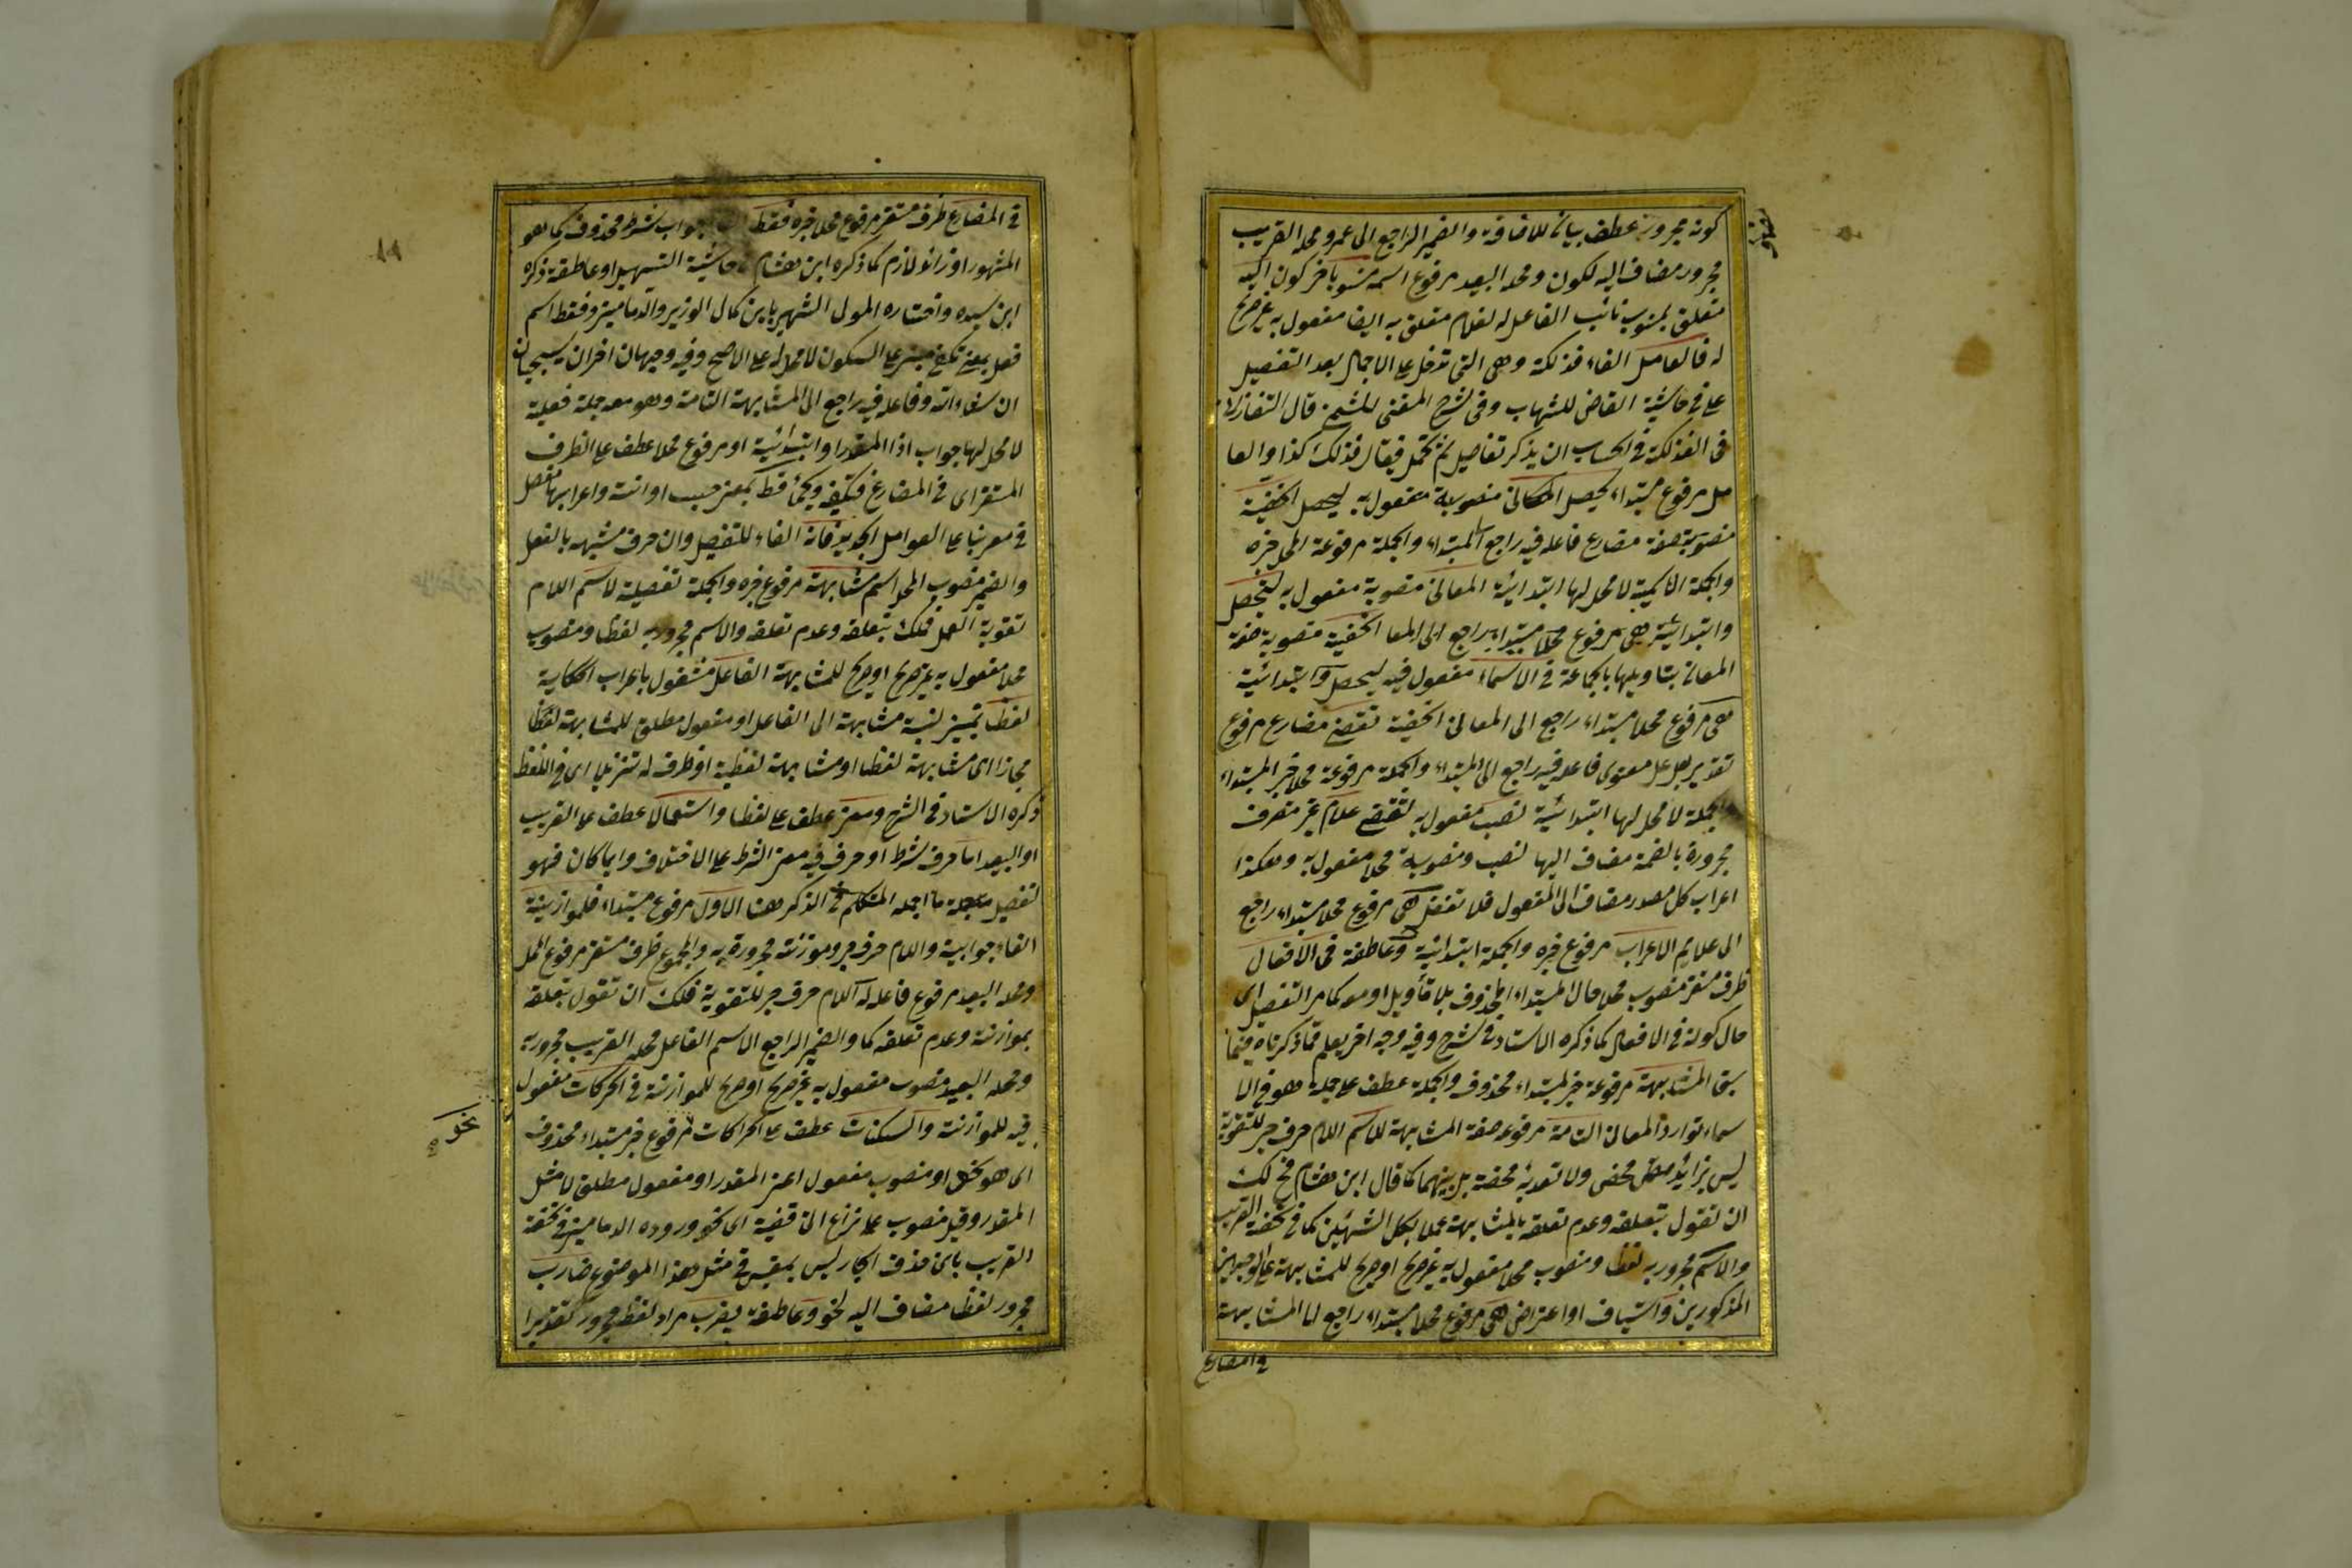 كونه مجرورة عطف بيان للاضافة والضمير الراجع الى عمرو محله القريب
مجرور مضاف اليه لكون ومحله البعيد مرفوع اسمه منسوبا خبر كون اليه
متعلق بمنسوب نائب الفاعل له لغلام متعلق به ايضا مفعول به غير صريح
له فالعامل الفاء فذلكة وهى التى تدخل على الاجمال بعد التفصيل
على فى حاشية القاضى للشهاب وفى شرح المغنى للشمنى قال التفتازانى
فى الفذلكة فى الحساب ان يذكر تفاصيل ثم تجمل فيقال فذلك كذا والعا
مل مرفوع مبتداء يحصل المعانى منصوبة مفعول به ليحصل الخفية
منصوبة صفة مضارع فاعله فيه راجع الى المبتداء والجملة مرفوعة المحل خبره
والجملة الاسمية لا محل لها ابتدائية المعانى منصوبة مفعول به ليحصل
وابتدائية هى مرفوع محلا مبتداء راجع الى المعا الخفية منصوبة صفة
المعانى بتاويلها بالجماعة فى الاسماء مفعول فيه ليحصل وابتدائية
هى مرفوع محلا مبتداء راجع الى المعانى الخفية تقتضى مضارع مرفوع
تقديرا بعامل معنوى فاعله فيه راجع الى المبتداء والجملة مرفوعة محلا خبر المبتداء
والجملة لا محل لها ابتدائية نصب مفعول به لتقتضى علام غير منصرف
مجرورة بالفتحة مضاف اليها لنصب ومنصوبة محلا مفعول به وهكذا
اعراب كل مصدر مضاف الى المفعول فلا تغفل هى مرفوع محلا مبتداء راجع
الى علايم الاعراب مرفوع خبره والجملة ابتدائية وعاطفة فى الافعال
ظرف مستقر منصوب محلا حال المبتداء المحذوف بلا تأويل او معه كما مر التفصيل اى
حال كونه فى الافعال كما ذكره الاستاد فى شرح وفيه وجه اخر يعلم مما ذكرناه فيما
سبق المشابهة مرفوعة خبر لمبتداء محذوف والجملة عطف على جملة هو فى الا
سماء توارد المعانى التامة مرفوعة صفة المشابهة للاسم اللام حرف جر للتقوية
ليس بزائد محض ولا تعدية محضة بل بينهما كما قال ابن هشام فح لك
ان تقول بتعلقه وعدم تعلقه بالمشابهة عملا بكل الشبهين كما فى تحفة الغريب
والاسم مجرور به لفظا ومنصوب محلا مفعول به غير صريح او صريح للمشابهة على الوجهين
المذكورين واستيناف او اعتراض هى مرفوع محلا مبتداء راجع لما المشابهة
فى المضارع
فى المضارع ظرف مستقر مرفوع محلا خبره فقط جواب شرط محذوف كما هو
المشهور او زائد لازم كما ذكره ابن هشام فى حاشية التسهيل او عاطفة ذكره
ابن سيده واختاره المولى الشهير بابن كمال الوزير والدمامينى وفقط اسم
فعل بمعنى يكفى مبنى على السكون لا محل له على الاصح وفيه وجهان اخران سيجيان
ان شاء الله وفاعله فيه راجع الى المشابهة التامة وهو معه جملة فعلية
لا محل لها جواب اذا المقدر او ابتدائية او مرفوع محلا عطف على الظرف
المستقر اى فى المضارع فتكفى ويجئ فقط بمعنى حسب او انته واعرابها مفصل
فى معربنا على العوامل الجديد فانه الفاء للتفصيل وان حرف مشبه بالفعل
والضمير منصوب المحل اسم مشابهة مرفوع خبره والجملة تفصيلة لاسم اللام
تقوية العمل فلك بتعلقه وعدم تعلقه والاسم مجرور به لفظا ومنصوب
محلا مفعول به غير صريح او صريح للمشابهة الفاعل مشغول باعراب الحكاية
لفظا تمييز لنسبة مشابهة الى الفاعل او مفعول مطلق للمشابهة لفظا
مجازا اى مشابهة لفظا او مشابهة لفظية او ظرف له تنزيلا اى فى اللفظ
ذكره الاستاد فى الشرح ومعنى عطف على لفظا واستعمالا عطف على القريب
او البعيد اما حرف شرط او حرف فيه معنى الشرط على الاختلاف وايا كان فهو
لتفصيل ما اجمله المتكلم فى الذكر ههنا الاول مرفوع مبتداء فلموازنته
الفاء جوابية واللام حرف جر وموازنته مجرورة به والمجموع ظرف مستقر مرفوع المحل
ومحله البعيد مرفوع فاعله له اللام حرف جر للتقوية فلك ان تقول بتعلقه
بموازنته وعدم تعلقه كما والضمير الراجع الاسم الفاعل محله القريب مجرور به
ومحله البعيد منصوب مفعول به غير صريح او صريح للموازنة فى الحركات مفعول
فيه للموازنة والسكنات عطف على الحركات مرفوع خبر مبتداء محذوف
نحو
اى هو نحو او منصوب مفعول اعنى المقدر او مفعول مطلق لا مثل
المقدر وقيل منصوب على نزع الخافضية اى كنحو ورده الدمامينى فى تحفة
الغريب بان حذف الجار ليس بمقيس فى مثل هذا الموضوع ضارب
مجرور لفظا مضاف اليه لنحو وعاطفة يضرب مراد لفظه مجرور تقديرا